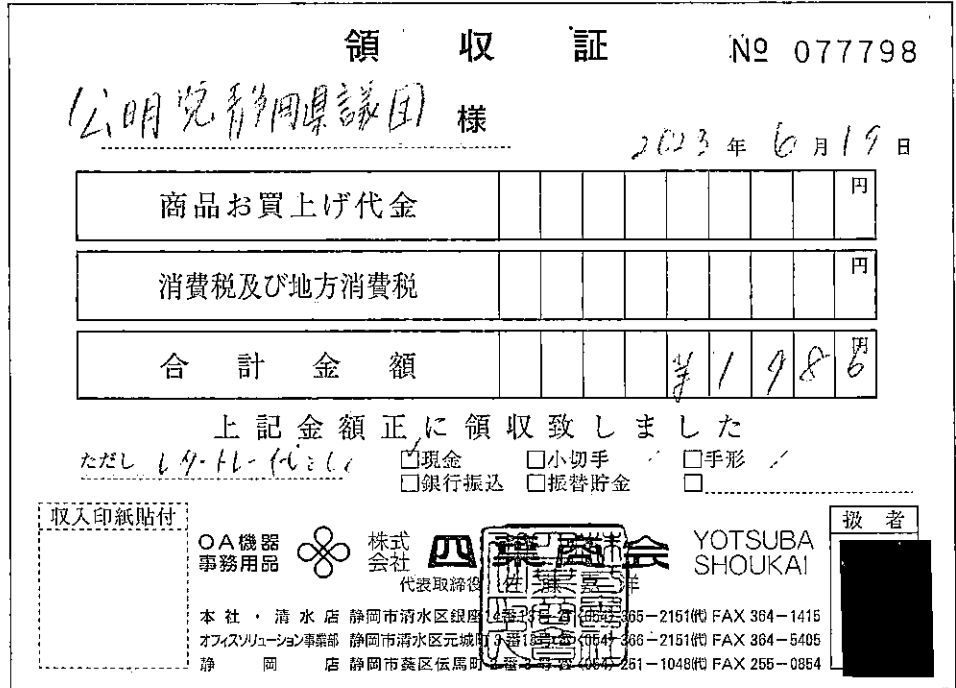 領 収 証 № 077798
公明党静岡県議団 様
2023 年 6 月 19 日
商品お買上げ代金 円
消費税及び地方消費税 円
合 計 金 額 ¥1986 円
上記金額正に領収致しました
ただし レタートレー代として ☑現金 □小切手 □手形
□銀行振込 □振替貯金 □
収入印紙貼付 扱 者
OA機器 事務用品 株式会社 四葉商会 YOTSUBA SHOUKAI
代表取締役 佐 藤 嘉 洋
本 社 ・ 清 水 店 静岡市清水区銀座14番13号 ☎(054)365-2151㈹ FAX 364-1415
オフィスソリューション事業部 静岡市清水区元城町3番18号 ☎(054)366-2151㈹ FAX 364-5405
静 岡 店 静岡市葵区伝馬町 番 号 ☎(054)251-1048㈹ FAX 255-0854